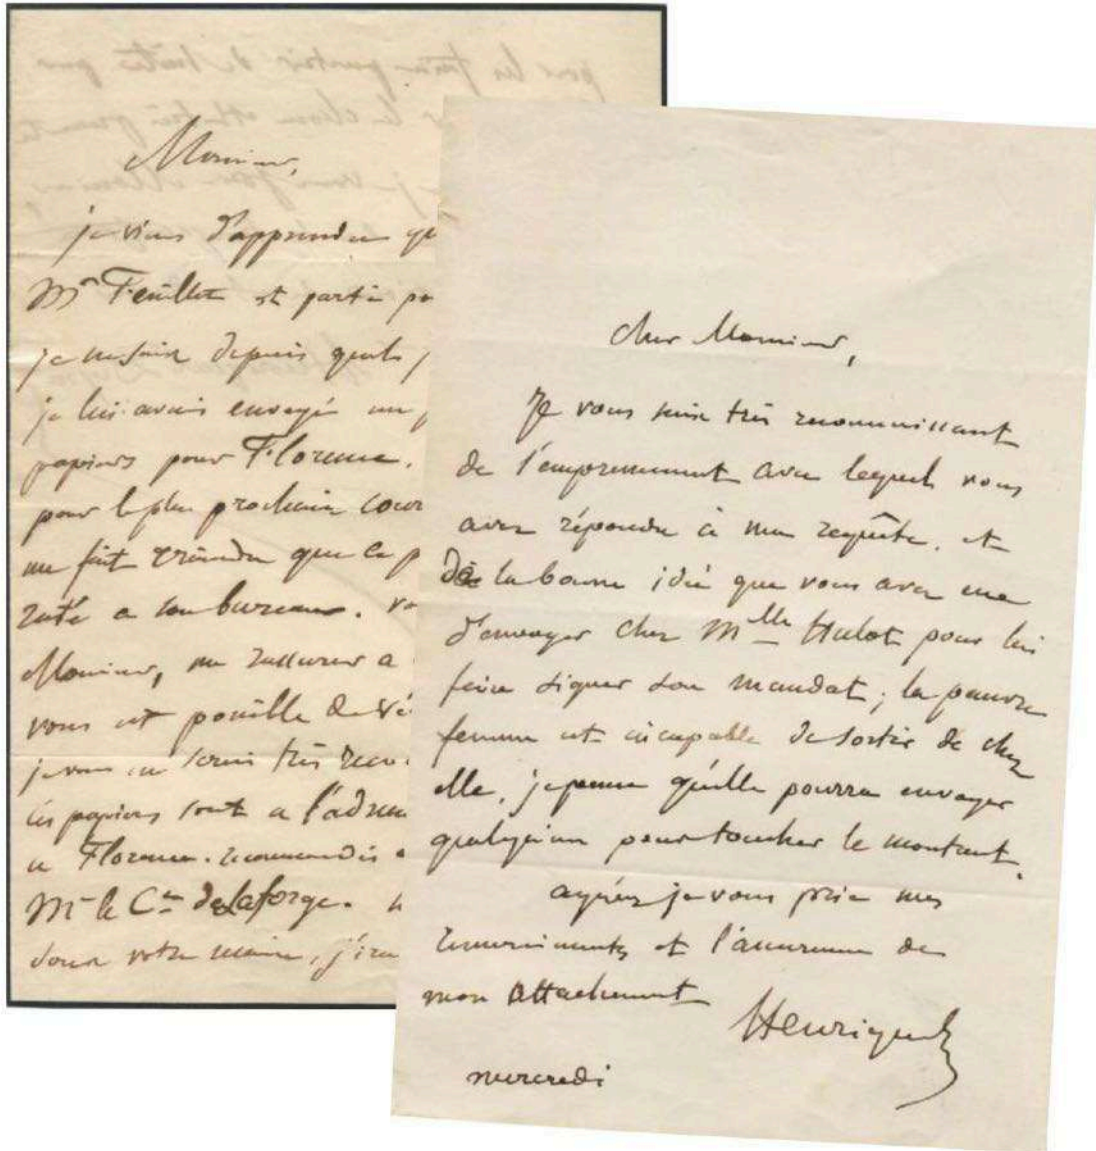 Monsieur,
je viens d'apprendre qu
Mr Feuillet est partie po
je ne sais depuis quels j
je lui avais envoyé un p
papiers pour Florence.
pour le plus prochain cour
me fait craindre que ce p
resté a son bureau. vo
Monsieur, me rassurer a
vous est possible de vé
je vous en serais très reco
ces papiers sont a l'adress
a Florence. recommandés
Mr le Cte delaforge.
sous votre main, j'irai
cher Monsieur,
Je vous suis très reconnaissant
de l'empressement avec lequel vous
avez répondu à ma requête. et
de la bonne idée que vous avez eue
d'envoyer chez Mlle Hulot pour lui
faire signer son mandat; la pauvre
femme est incapable de sortir de chez
elle, je pense qu'elle pourra envoyer
quelqu'un pour toucher le montant.
agréez je vous prie mes
remerciements et l'assurance de
mon attachement
Henriquel
mercredi